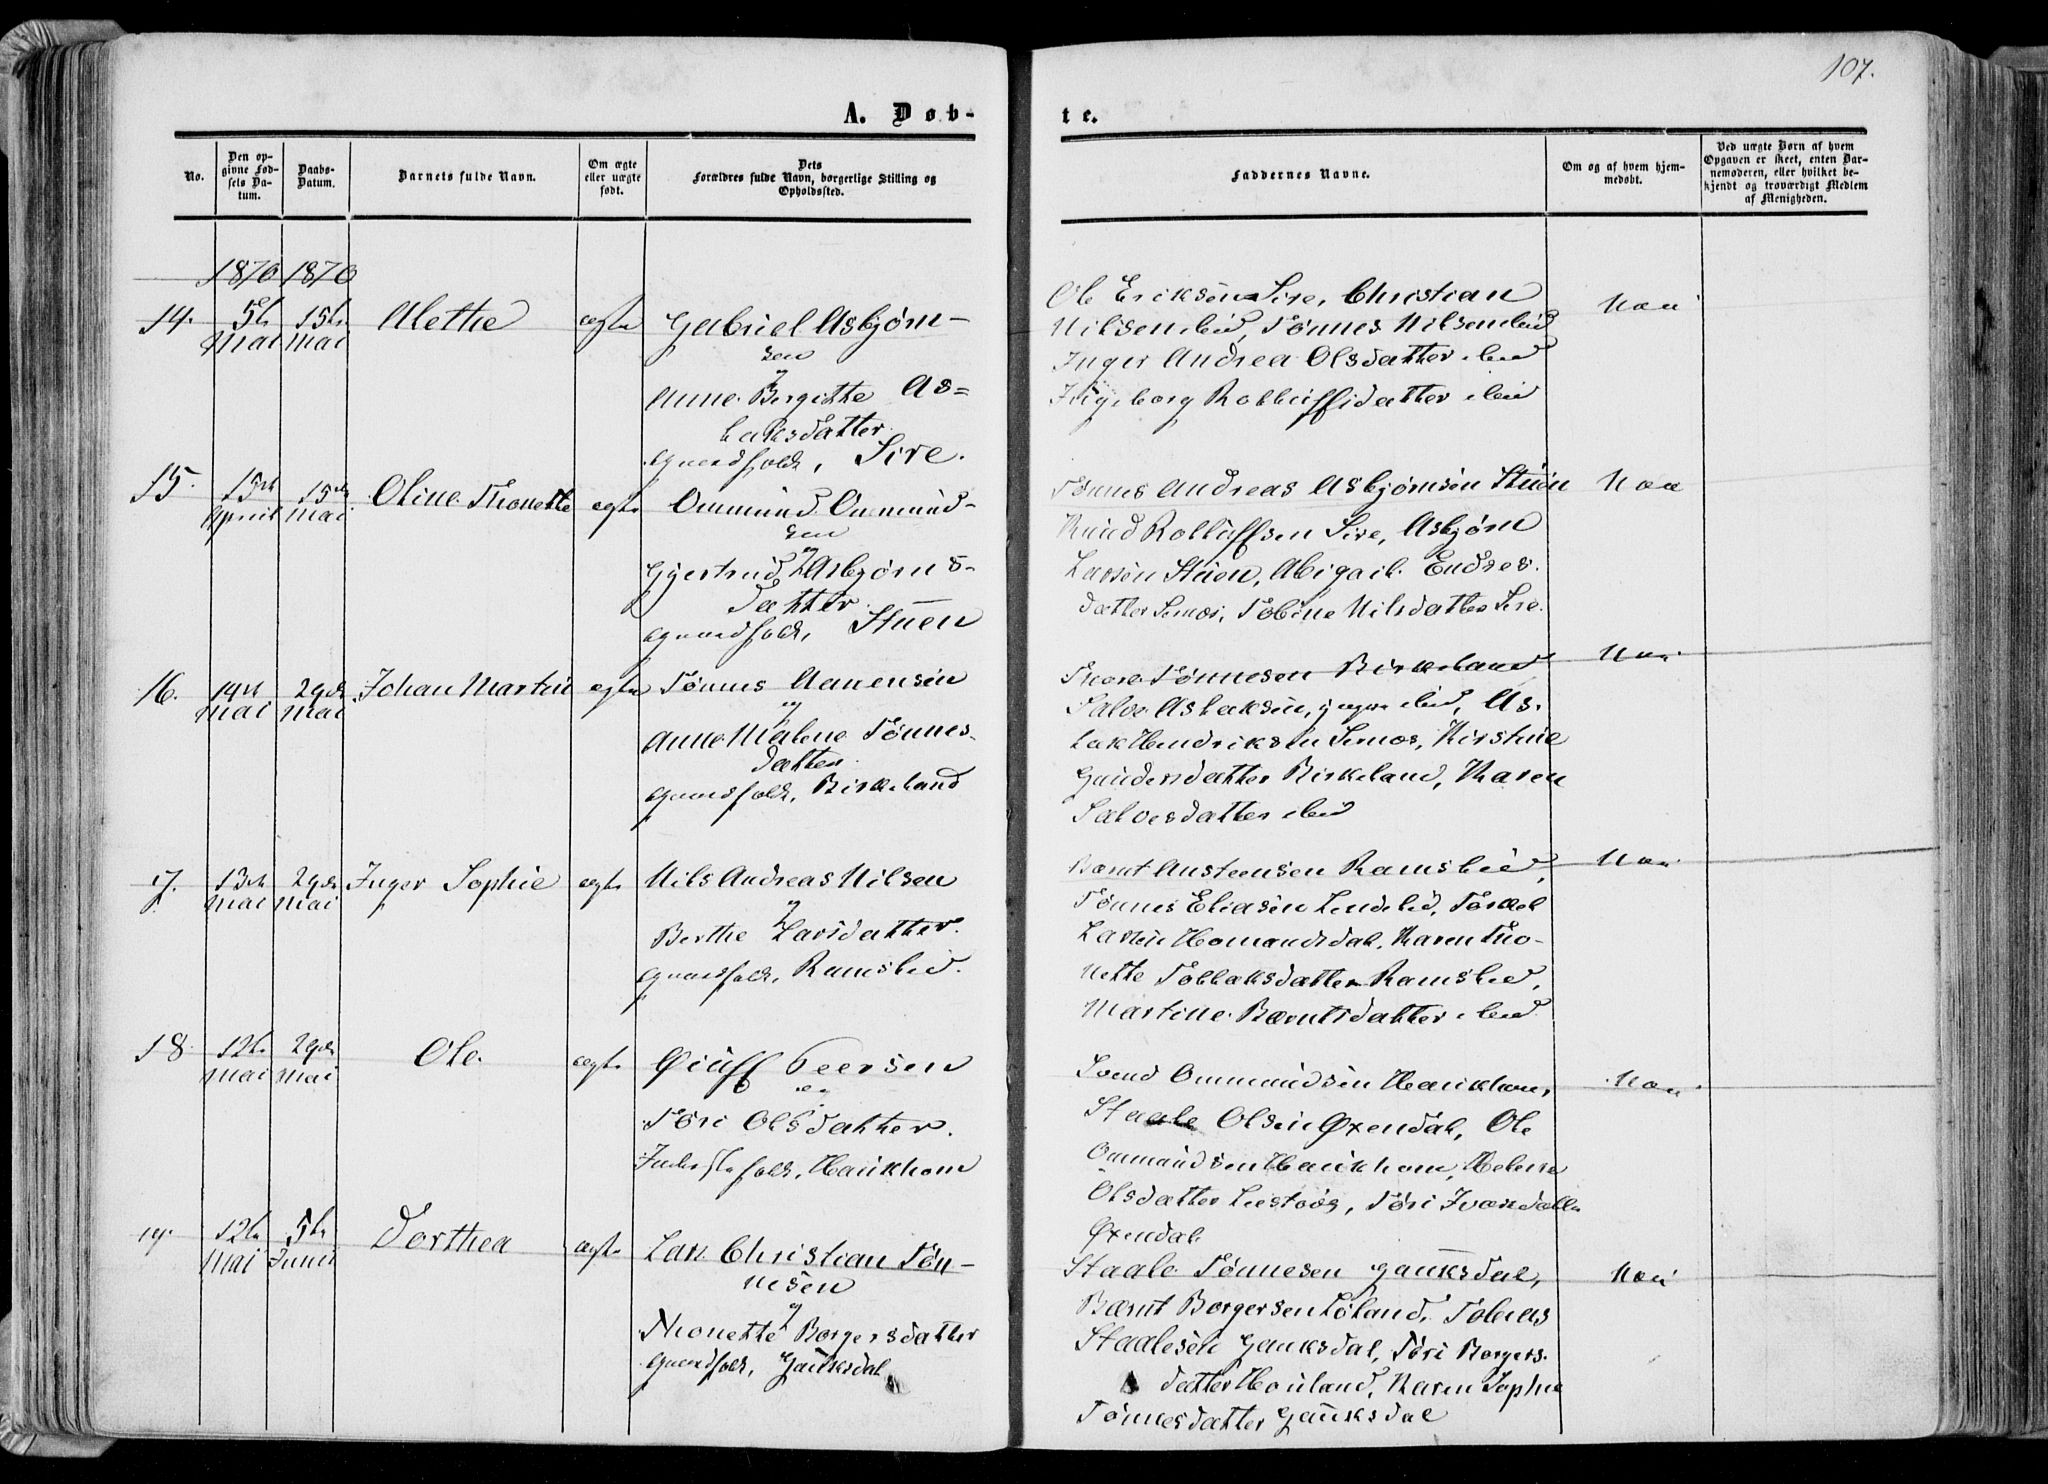 107.
A. Døb-
te.
No.
Den op-
givne Fød-
sels Da-
tum.
Daabs-
Datum.
Barnets fulde Navn.
Om ægte
eller uægte
født.
Dets
Forældres fulde Navn, borgerlige Stilling og
Opholdssted.
Faddernes Navne.
Om og af hvem hjem-
medøbt.
Ved uægte Børn af hvem
Opgaven er skeet, enten Bar-
nemoderen, eller hvilket be-
kjendt og troværdigt Medlem
af Menigheden.
1870 1870
14.
5te
Mai
15de
Mai
Alethe
ægte
Gabriel Asbjørn-
sen
og
Anne Bergitte As-
laksdatter
Gaardfolk, Sire.
Ole Eriksen Sire, Christian
Nilsen ibid, Tønnes Nilsen ibid
Inger Andrea Olsdatter ibid
Ingeborg Rolluffsdatter ibid
Nei
15.
15de
April
15de
Mai
Oline Thonette
ægte
Ommund Ommund-
sen
og
Gjertrud Asbjørns-
datter
Gaardfolk, Stuen
Tønnes Andreas Asbjørnsen Stuen
Knud Rolluffsen Sire, Asbjørn
Larsen Stuen, Abigael Endres-
datter Sirnes, Tobine Nilsdatter Sire.
Nei
16.
14de
Mai
29de
Mai
Johan Martin
ægte
Tønnes Aanensen
og
Anne Malene Tønnes-
datter
Gaardfolk, Birkeland
Thore Tønnesen Birkeland
Salve Aslaksen, ibid, As-
lak Hendriksen Sirnes, Kirstine
Gundersdatter Birkeland, Karen
Salvesdatter ibid
Nei
17.
13de
Mai
29de
Mai
Inger Sophie
ægte
Nils Andreas Nilsen
og
Berthe Larsdatter.
Gaardfolk, Ramslid.
Bernt Austensen Ramslid,
Tønnes Eliasen Lindelid, Torkel
Larsen Homandsdal, Karen Tho-
nette Tollaksdatter Ramslid,
Martine Berntsdatter ibid
Nei
18
12te
Mai
29de
Mai
Ole
ægte
Øiuff Peersen
og
Tøri Olsdatter.
Inderstefolk, Haukhom
Svend Ommundsen Haukhom,
Staale Olsen Øxendal, Ole
Ommundsen Haukhom, Helene
Olsdatter, Tøri Ivarsdatter
Øxendal
Nei
19.
12te
Mai
5te
Junii
Dorthea
ægte
Lars Christian Tøn-
nesen
og
Thonette Borgersdatter
Gaardfolk, Gauksdal
Staale Tønnesen Gauksdal,
Bernt Borgersen Løland, Tobias
Staalesen Gauksdal, Tøri Borgers-
datter Houland, Karen Sophie
Tønnesdatter Gauksdal
Nei